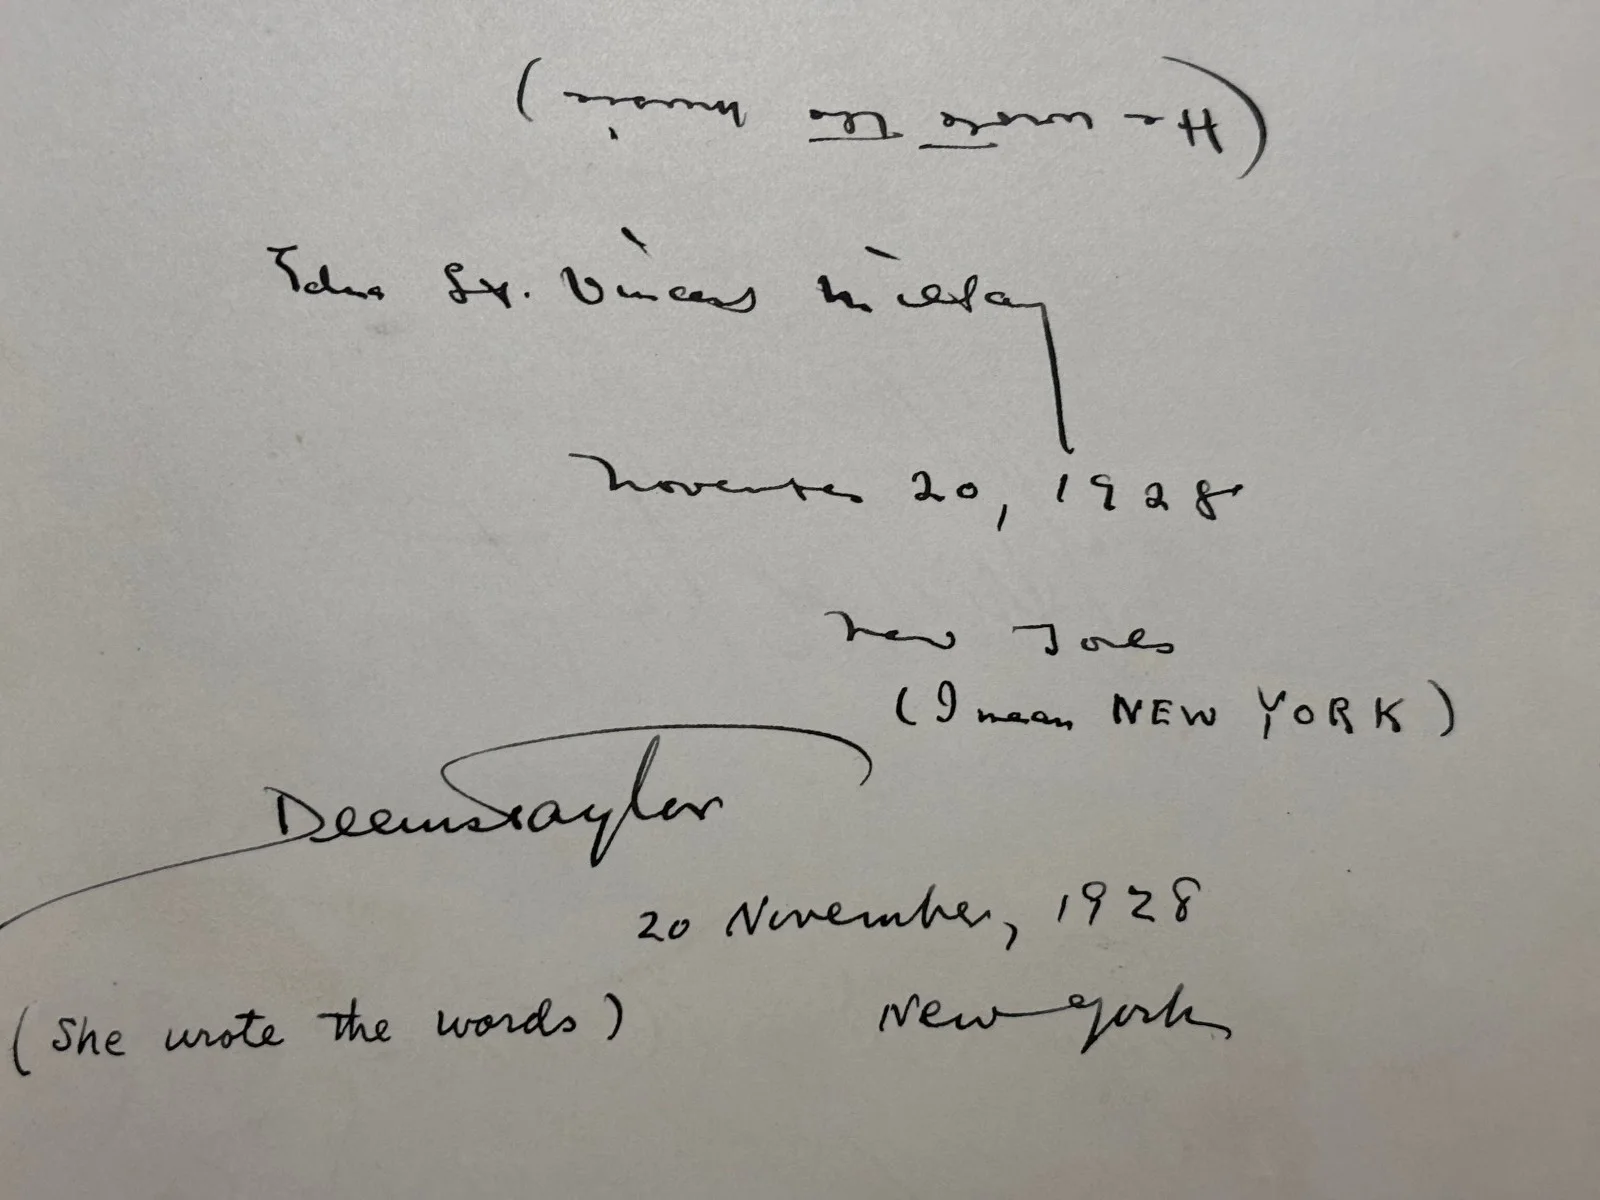 (He wrote the music)
Edna St. Vincent Millay
November 20, 1928
New York
(I mean NEW YORK)
Deems Taylor
20 November, 1928
(She wrote the words)
New York